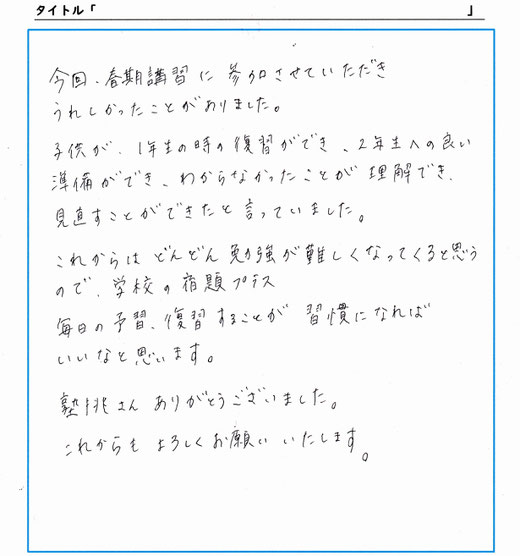 タイトル「 」
今回、春期講習に参加させていただき
うれしかったことがありました。
子供が、1年生の時の復習ができ、2年生への良い
準備ができ、わからなかったことが理解でき、
見直すことができたと言っていました。
これからはどんどん勉強が難しくなってくると思う
ので、学校の宿題プラス
毎日の予習、復習することが習慣になれば
いいなと思います。
塾挑さんありがとうございました。
これからもよろしくお願いいたします。